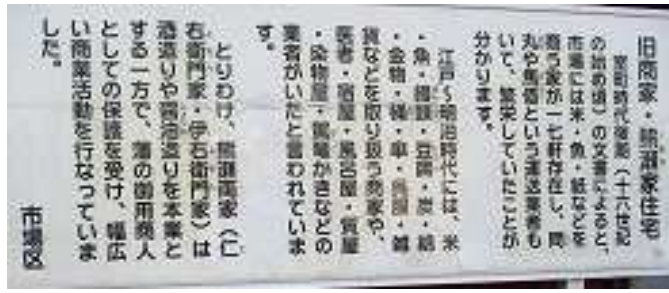 旧商家・熊瀬家住宅
室町時代後期（十六世紀
の始め頃）の文書によると、
市場には米・魚・紙などを
商う家が一七軒存在し、問
丸や馬借という運送業者も
いて、繁栄していたことが
分かります。
江戸～明治時代には、米
・魚・饅頭・豆腐・炭・
・金物・・傘・呉服・雑
貨などを取り扱う商家や、
医者・宿屋・風呂屋・質屋
・染物屋・駕籠かきなどの
業者がいたと言われていま
す。
とりわけ、熊瀬両家（仁
右衛門家・伊右衛門家）は
酒造りや醤油造りを本業と
する一方で、藩の御用商人
としての保護を受け、幅広
い商業活動を行なっていま
した。
市場区